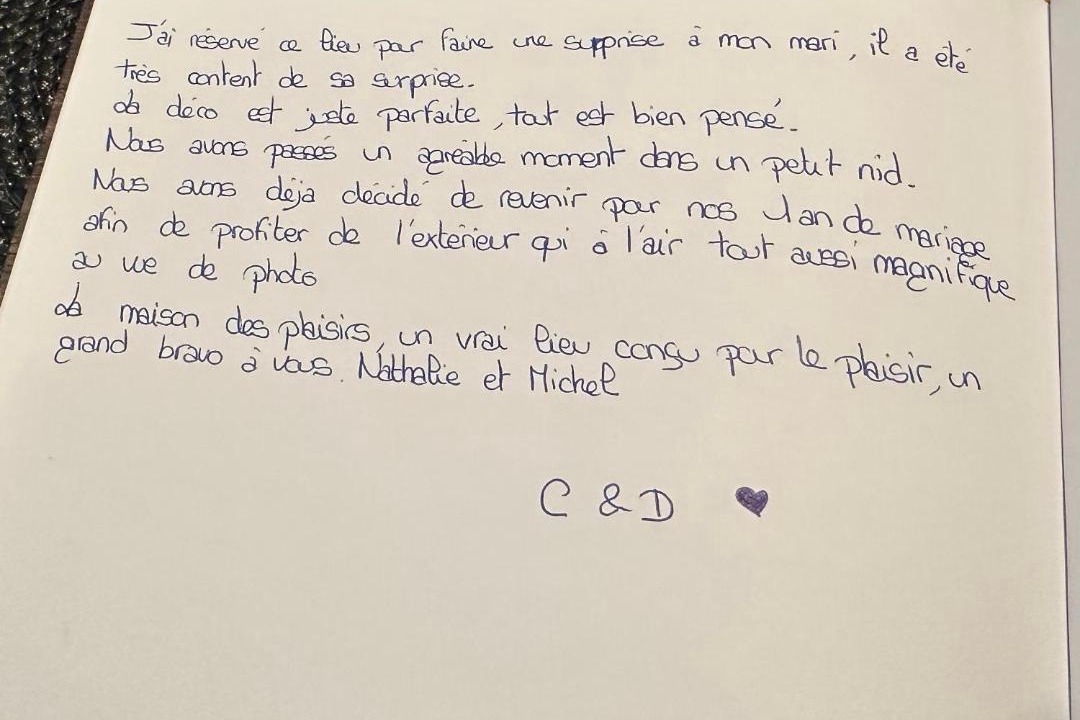 J'ai réservé ce lieu pour faire une supprise à mon mari, il a été
très content de sa surprise.
La déco est juste parfaite, tout est bien pensé.
Nous avons passés un agréable moment dans un petit nid.
Nous avons déja décidé de revenir pour nos 1 an de mariage
afin de profiter de l'extérieur qui à l'air tout aussi magnifique
au vue de photo
La maison des plaisirs, un vrai lieu conçu pour le plaisir, un
grand bravo à vous. Nathalie et Michel
C & D ♥